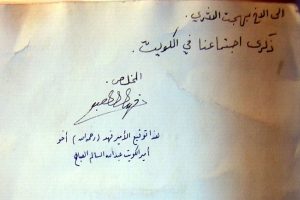 الى الاخ بهجت العشري.
ذكرى اجتماعنا في الكويت
المخلص.
هذا توقيع الأمير فهد (رحمه الله) أخو
أمير الكويت عبدالله السالم الصباح